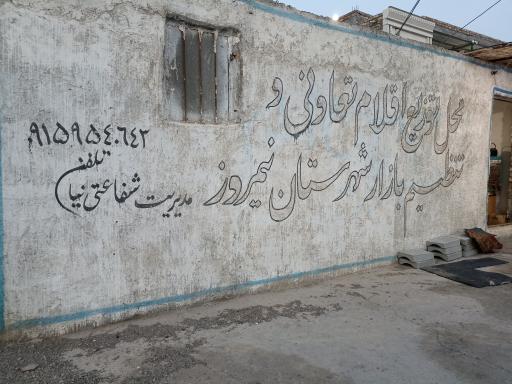 محل توزیع اقلام تعاونی و
تنظیم بازار شهرستان نیمروز
۹۱۵۹۵۴۰۶۴۲
تلفن
مدیریت شفاعتی نیا